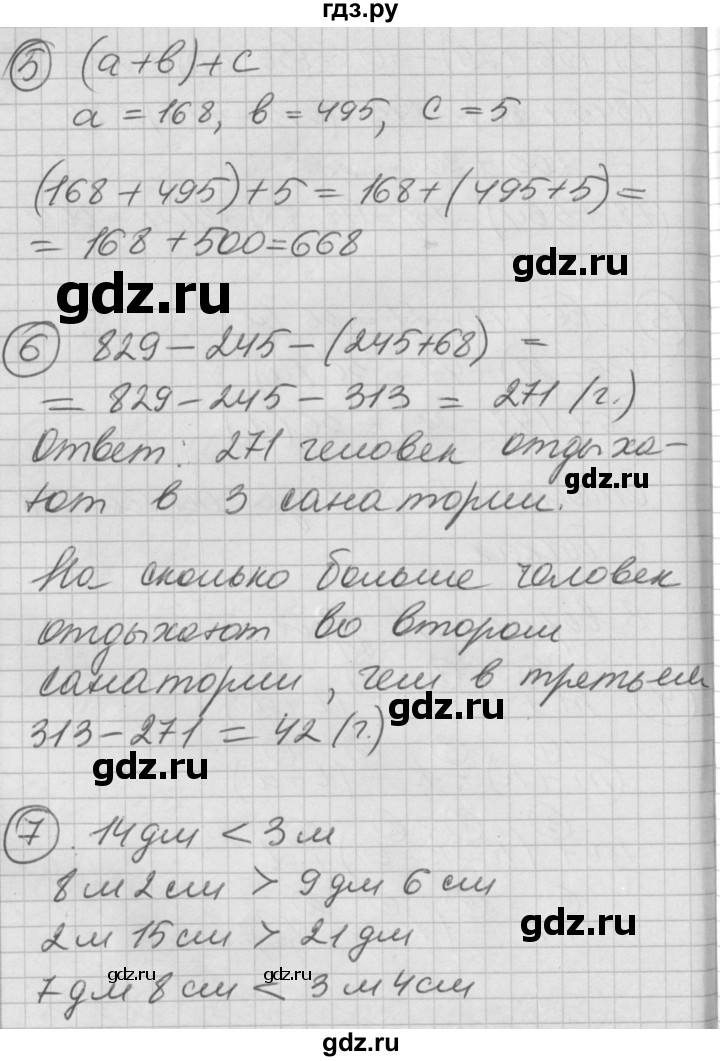 гдз.ру
5 (а+в)+с
а = 168, в = 495, с = 5
(168 + 495) + 5 = 168 + (495+5) =
= 168 + 500 = 668
gdz.ru
gdz.ru
6 829 - 245 - (245+68) =
= 829 - 245 - 313 = 271 (г.)
Ответ: 271 человек отдыха-
gdz.ru
ют в 3 санатории.
На сколько больше человек
отдыхают во втором
санатории, чем в третьем
gdz.ru
313 - 271 = 42 (г.)
gdz.ru
7. 14 дм < 3 м
8 м 2 см > 9 дм 6 см
gdz.ru
2 м 15 см > 21 дм
gdz.ru gdz.ru
7 дм 8 см < 3 м 4 см
gdz.ru